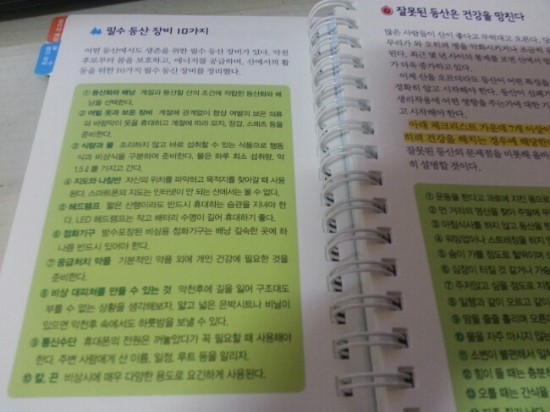 필수 등산 장비 10가지
어떤 등산에서도 생존을 위한 필수 등산 장비가 있다. 악천
후로부터 몸을 보호하고, 에너지를 공급하며, 산에서의 활
동을 위한 10가지 필수 등산 장비를 정리했다.
① 등산화와 배낭 계절과 등산할 산의 조건에 적합한 등산화와 배
낭을 선택한다.
② 여벌 옷과 보온 장비 계절에 관계없이 항상 여벌의 보온 의류
와 바람막이 옷을 휴대하고 계절에 따라 모자, 장갑, 스패츠 등을
준비한다.
③ 식량과 물 조리하지 않고 바로 섭취할 수 있는 식품으로 행동
식과 비상식을 구분하여 준비한다. 물은 하루 최소 섭취량, 약
1.5ℓ를 가지고 간다.
④ 지도와 나침반 자신의 위치를 파악하고 목적지를 찾아갈 때 사용
된다. 스마트폰의 지도는 인터넷이 안 되는 산에서는 볼 수 없다.
⑤ 헤드램프 짧은 산행이라도 반드시 휴대하는 습관을 지녀야 한
다. LED 헤드램프는 작고 배터리 수명이 길어 휴대하기 좋다.
⑥ 점화기구 방수포장된 비상용 점화기구는 배낭 깊숙한 곳에 하
나쯤 반드시 있어야 한다.
⑦ 응급처치 약품 기본적인 약품 외에 개인 건강에 필요한 것을
준비한다.
⑧ 비상 대피처를 만들 수 있는 것 악천후에 길을 잃어 구조대도
부를 수 없는 상황을 생각해보자. 얇고 넓은 은박시트나 비닐이
있으면 악천후 속에서도 하룻밤을 보낼 수 있다.
⑨ 통신수단 휴대폰의 전원은 꺼놓았다가 꼭 필요할 때 사용해야
한다. 주변 사람에게 산 이름, 일정, 루트 등을 알리자.
⑩ 칼, 끈 비상시에 매우 다양한 용도로 요긴하게 사용된다.
잘못된 등산은 건강을 망친다
많은 사람들이 산이 좋다고 무턱대고 오른다.
무리가 와 오히려 병을 악화시키거나
된다. 최근 몇 년 사이의 통계를 보면 산에서
가 꾸준히 증가하고 있다.
이제 산을 오르더라도 등산이 어떤
정확히 알고 시작해야 한다. 등산이 신체
생리작용에 어떤 영향을 주는가에 대한
하고 시작해야 한다.
아래 체크리스트 가운데 7개 이상
하며 건강을 해치는 경우에 해당한
잘못된 등산의 문제점을 비롯해 올바
히 설명할 것이다.
① 운동을 한다고 과로에 지친 몸으로
② 먼 거리의 명산을 찾아 주말에
③ 아침식사를 하지 않고 등산을
④ 워밍업이나 스트레칭을 하지
⑤ 숨이 가쁠 정도로 헐떡이며
⑥ 심장이 터질 것 같거나
⑦ 주저앉고 싶을 정도로
⑧ 일행과 같이 오르고
⑨ 땀을 줄줄 흘리며 오른다
⑩ 물을 자주 마시지 않는
⑪ 소변이 불편해서 일부
⑫ 힘이 들 때는 충분
⑬ 오를 때는 간식을